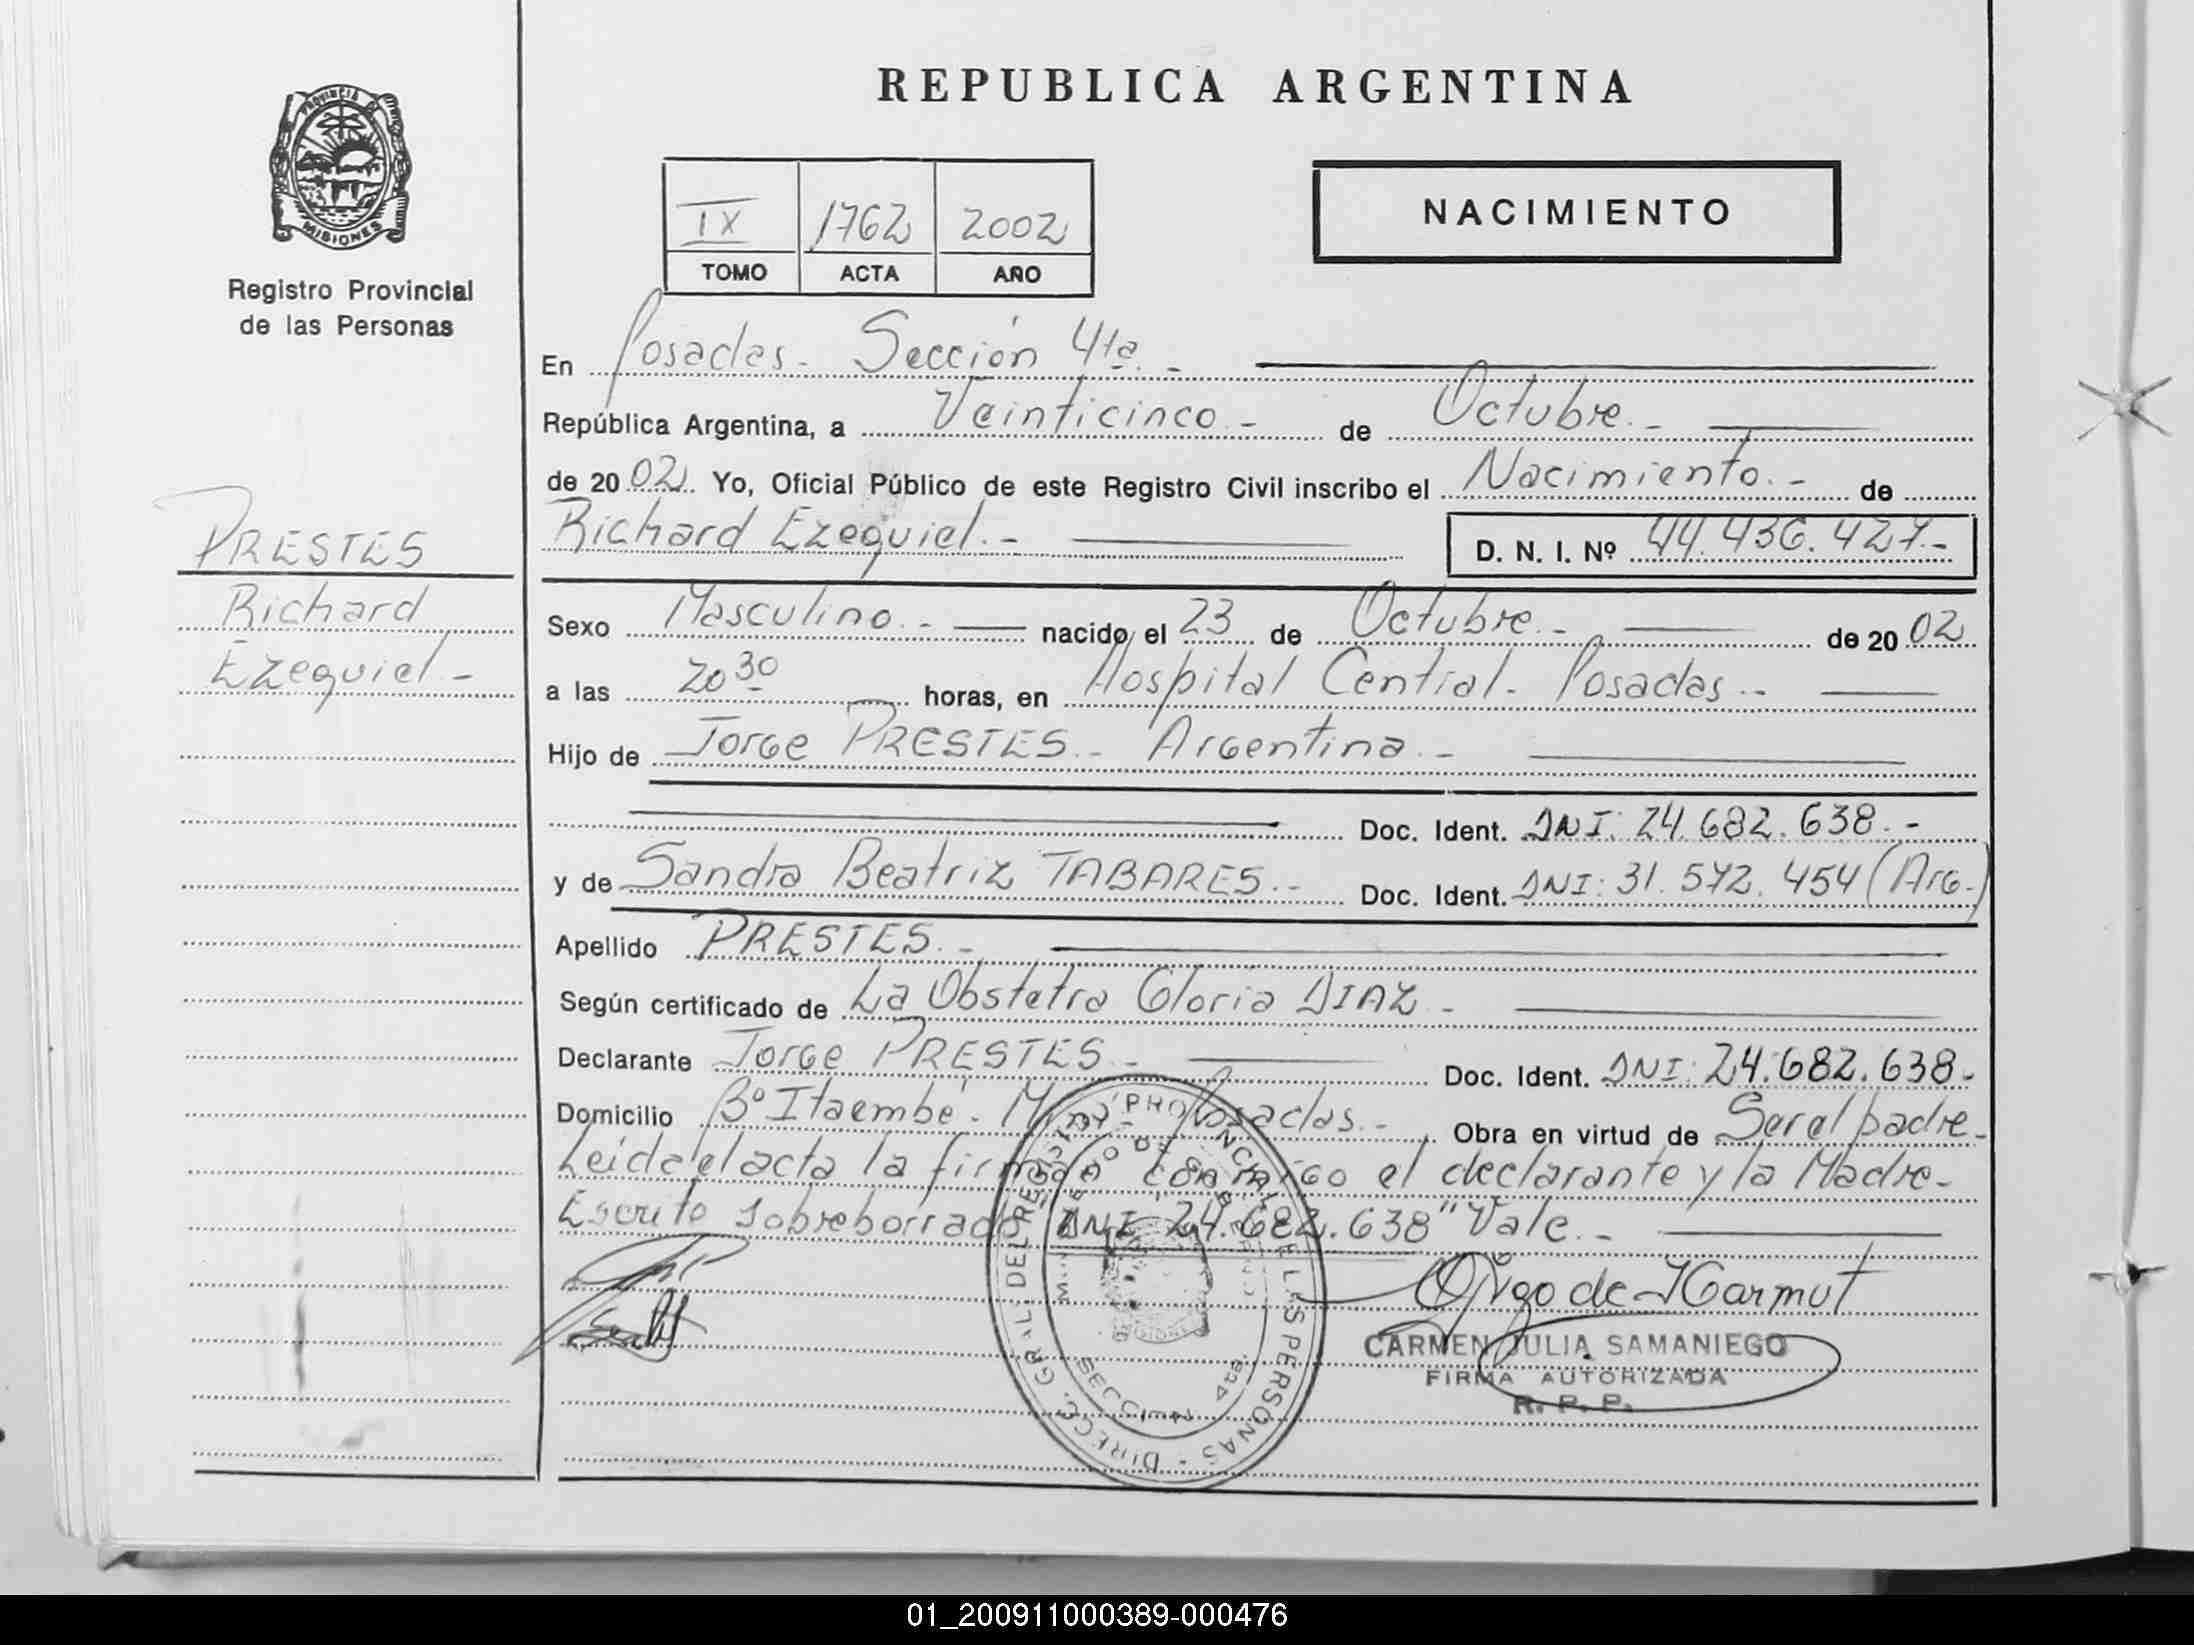 REPUBLICA ARGENTINA
PROVINCIA
MISIONES
Registro Provincial
de las Personas
NACIMIENTO
IX 1762 2002
TOMO ACTA AÑO
En Posadas - Sección 4ta. -
República Argentina, a Veinticinco. - de Octubre. -
de 20 02 Yo, Oficial Público de este Registro Civil inscribo el Nacimiento. - de
Richard Ezequiel. - D. N. I. Nº 44.436.427.-
PRESTES
Richard
Ezequiel -
Sexo Masculino. - nacido el 23 de Octubre. - de 20 02
a las 20 30 horas, en Hospital Central. Posadas. -
Hijo de Jorge PRESTES. - Argentina. -
Doc. Ident. DNI: 24.682.638. -
y de Sandra Beatriz TABARES. - Doc. Ident. DNI: 31.572.454 (Arg.)
Apellido PRESTES. -
Según certificado de La Obstetra Gloria DIAZ -
Declarante Jorge PRESTES. - Doc. Ident. DNI: 24.682.638.
Domicilio Bº Itaembé - Miní - Posadas. - Obra en virtud de Ser el padre -
Leida el acta la firman conmigo el declarante y la Madre -
Escrito sobreborrado "DNI 24.682.638" Vale. -
DIRECC. GRAL. DEL REGIST. PROVINCIAL DE LAS PERSONAS
SECCION 4ta.
CARMEN JULIA SAMANIEGO
FIRMA AUTORIZADA
R. P. P.
01_200911000389-000476